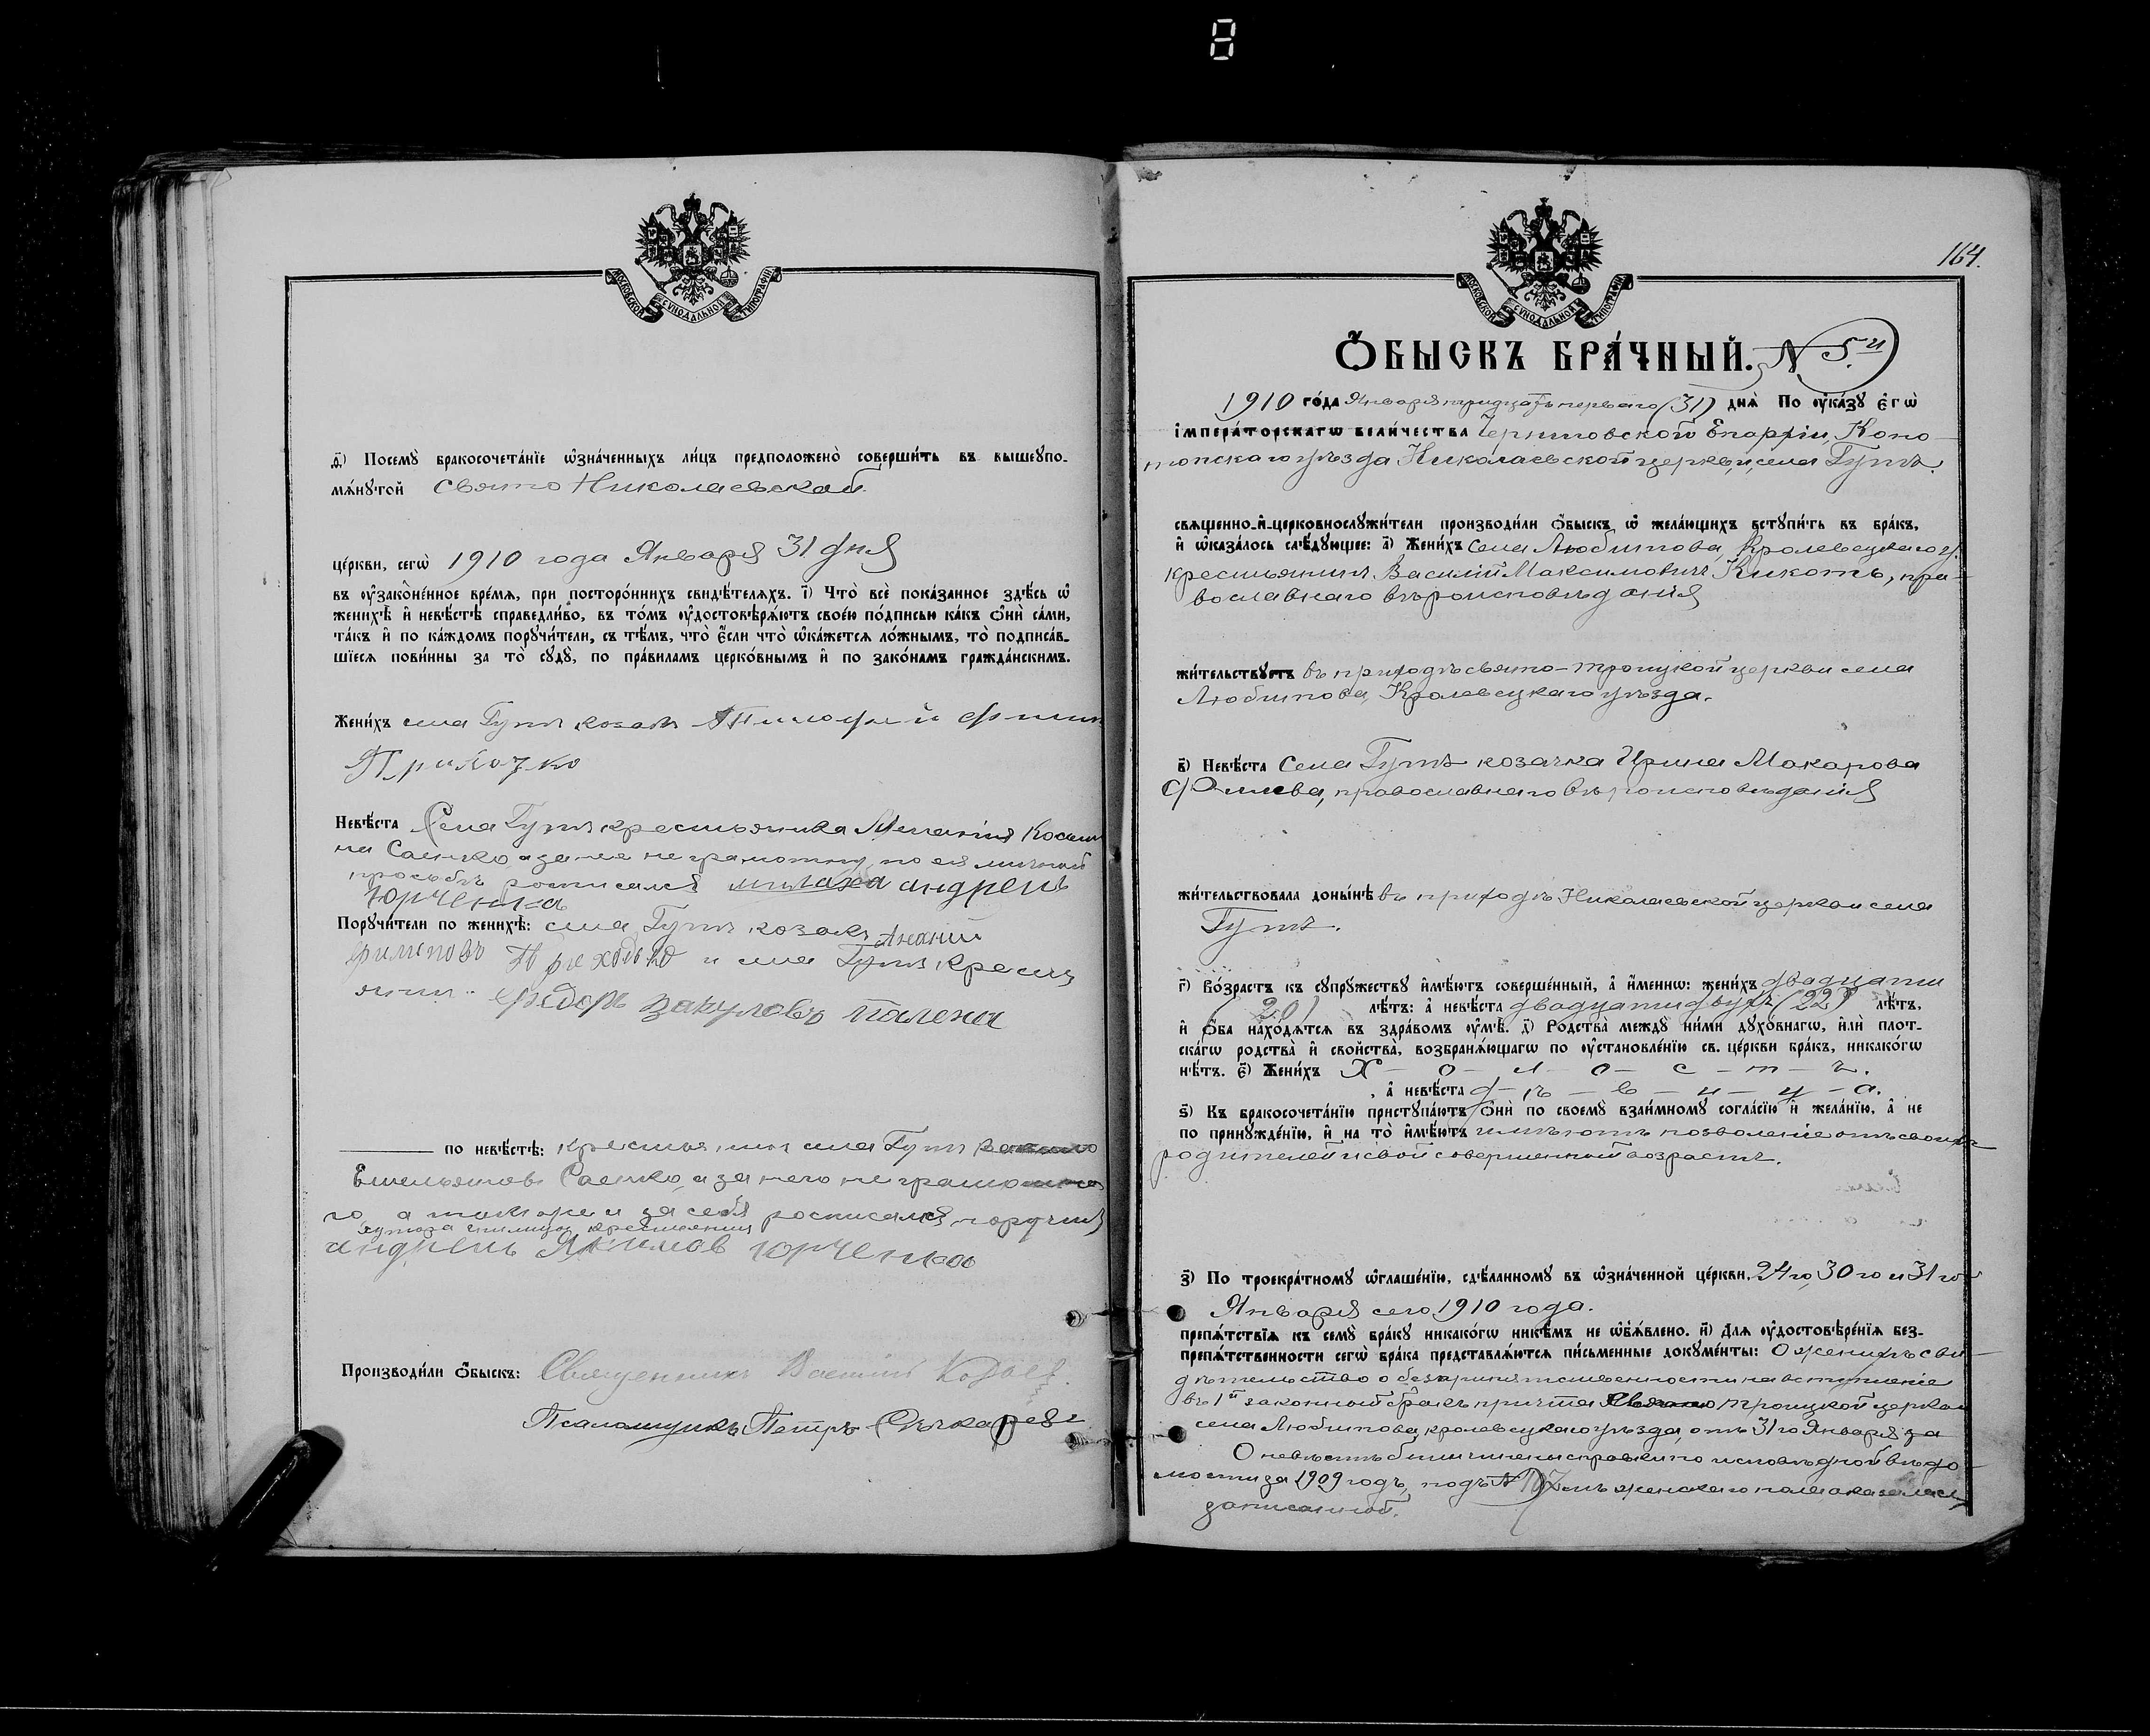 МОСКОВСКОЙ СѴНОДАЛЬНОЙ ТИПОГРАФІИ
д҃) Посемꙋ̀ бракосочета́нїе ѡ҆зна́ченныхъ ли́цъ предположено̀ соверши́ть въ вышеꙋпо-
мѧ́нꙋтой Свято Николаевской
це́ркви, сегѡ̀ 1910 года Января 31 дня
въ ᲂу҆зако́ненное вре́мѧ, при посторо́ннихъ свидѣ́телѧхъ. і҃) Что̀ всѐ пока́занное здѣ́сь ѡ҆
женихѣ̀ и҆ невѣ́стѣ справедли́во, въ то́мъ ᲂу҆достовѣрѧ́ютъ свое́ю по́дписью ка́къ ѻ҆нѝ са́ми,
та́къ и҆ по ка́ждомъ порꙋчи́тели, съ тѣ́мъ, что̀ є҆́сли что̀ ѡ҆ка́жетсѧ ло́жнымъ, то̀ подписа́в-
шїесѧ пови́нны за то̀ сꙋдꙋ̀, по пра́виламъ церко́внымъ и҆ по зако́намъ гражда́нскимъ.
Жени́хъ села Гутъ козакъ
Невѣ́ста Села Гутъ крестьянка Меланія Косьми
на Саенко, а за нее неграмотну, по ея личной
просьбѣ росписался андрей
Юрченко
Порꙋчи́тели по женихѣ̀: села Гутъ козакъ
Филиповъ Приходько и села Гутъ кресть
янинъ Федоръ
по невѣ́стѣ: крестьянинъ села Гутъ
Емельяновъ Саенко, а за него неграмотна
го, а также и за себя росписался, поручи
хутора крестьянинъ
андрей Якимов Юрченко
Производи́ли ѻ҆́быскъ: Священникъ Василій
Псаломщикъ Петръ
164.
МОСКОВСКОЙ СѴНОДАЛЬНОЙ ТИПОГРАФІИ
Ѻ҆́БЫСКЪ БРА́ЧНЫЙ. N 5й
1910 го́да Января тридцать перваго (31) днѧ̀ По ᲂу҆ка́зꙋ є҆гѡ̀
і҆мпера́торскагѡ вели́чества Черниговской Епархіи, Коно-
топскаго уѣзда Николаевской церкви, села Гутъ.
свѧщенно-и҆-церковнослꙋжи́тели производи́ли ѻ҆́быскъ ѡ҆ жела́ющихъ встꙋпи́ть въ бра́къ,
и҆ ѡ҆каза́лось слѣ́дꙋющее: а҃) Жени́хъ села Любитова, Кролевецкаго у.
крестьянинъ Василій Максимовичъ Кикоть, пра-
вославнаго вѣроисповѣданія
жи́тельствꙋетъ въ приходѣ свято-троицкой церкви села
Любитова, Кролевецкаго уѣзда.
в҃) Невѣ́ста Села Гутъ козачка Ирина Макарова
православнаго вѣроисповѣданія
жи́тельствовала доны́нѣ въ приходѣ Николаевской церкви села
Гутъ.
г҃) Во́зрастъ къ сꙋпрꙋ́жествꙋ и҆мѣ́ютъ соверше́нный, а҆ и҆́менно: жени́хъ двадцати
(20) лѣ́тъ: а҆ невѣ́ста двадцати двухъ (22) лѣ́тъ,
и҆ ѻ҆́ба нахо́дѧтсѧ въ здра́вомъ ᲂу҆мѣ̀. д҃) Родства̀ междꙋ̀ ни́ми дꙋхо́внагѡ, и҆лѝ плот-
ска́гѡ родства̀ и҆ свойства̀, возбранѧ́ющагѡ по ᲂу҆становле́нїю св. це́ркви бра́къ, никако́гѡ
нѣ́тъ. є҃) Жени́хъ Х – о – л – о – с – т – ъ.
, а҆ невѣ́ста д – ѣ – в – и – ц – а.
ѕ҃) Къ бракосочета́нїю пристꙋпа́ютъ ѻ҆нѝ по своемꙋ̀ взаи́мномꙋ согла́сїю и҆ жела́нїю, а҆ не
по принꙋжде́нїю, и҆ на то̀ и҆мѣ́ютъ имѣютъ позволеніе отъ своихъ
родителей и свой совершенный возрастъ.
з҃) По троекра́тномꙋ ѡ҆глаше́нїю, сдѣ́ланномꙋ въ ѡ҆зна́ченной це́ркви, 24го, 30го и 31го
Января сего 1910 года.
препѧ́тствїѧ къ семꙋ̀ бра́кꙋ никако́гѡ никѣ́мъ не ѡ҆б̾ѧ́влено. и҃) Длѧ ᲂу҆достовѣре́нїѧ без-
препѧ́тственности сегѡ̀ бра́ка представлѧ́ютсѧ пи́сьменные докꙋме́нты: О женихѣ сви-
дѣтельство о безпрепятственности на вступленіе
въ 1й законный бракъ причта троицкой церкви
села Любитова, кролевецкаго уѣзда, отъ 31го Января за
О невѣстѣ были справки по исповѣдной вѣдо-
мости за 1909 годъ, подъ N женскаго пола оказалась
записанной.